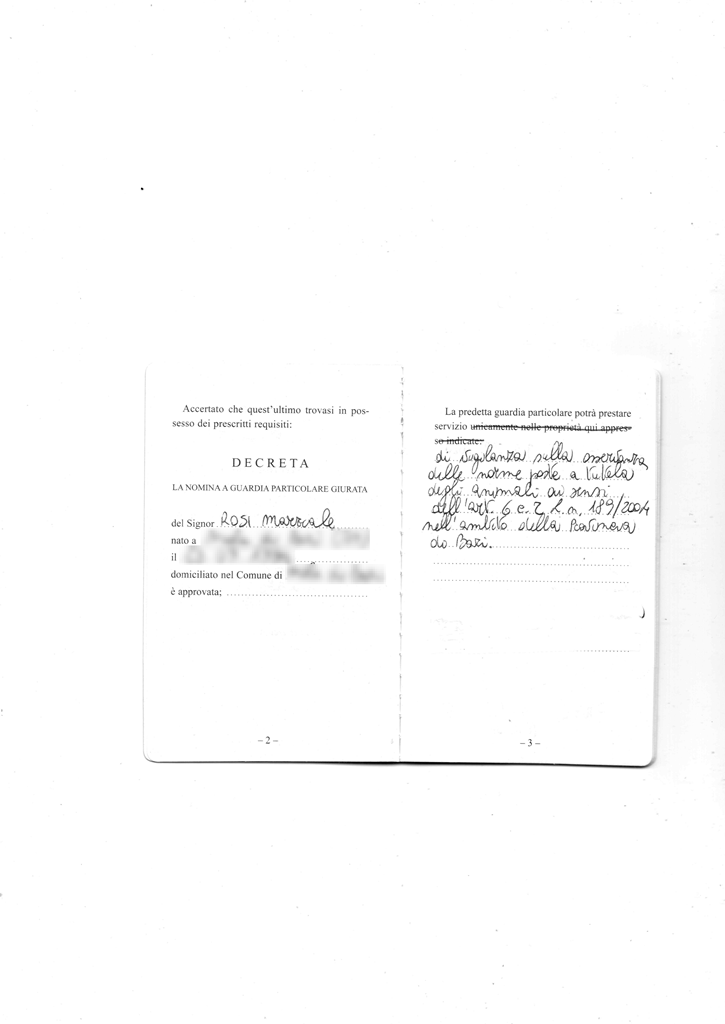 Accertato che quest'ultimo trovasi in pos-
sesso dei prescritti requisiti:
DECRETA
LA NOMINA A GUARDIA PARTICOLARE GIURATA
del Signor ROSI
nato a
il
domiciliato nel Comune di
è approvata;
– 2 –
La predetta guardia particolare potrà prestare
servizio unicamente nelle proprietà qui appres-
so indicate:
di vigilanza sulla osservanza
delle norme poste a tutela
degli animali ai sensi
dell'art. 6 c. 2 L. n. 189/2004
nell'ambito della Provincia
di Bari.
– 3 –